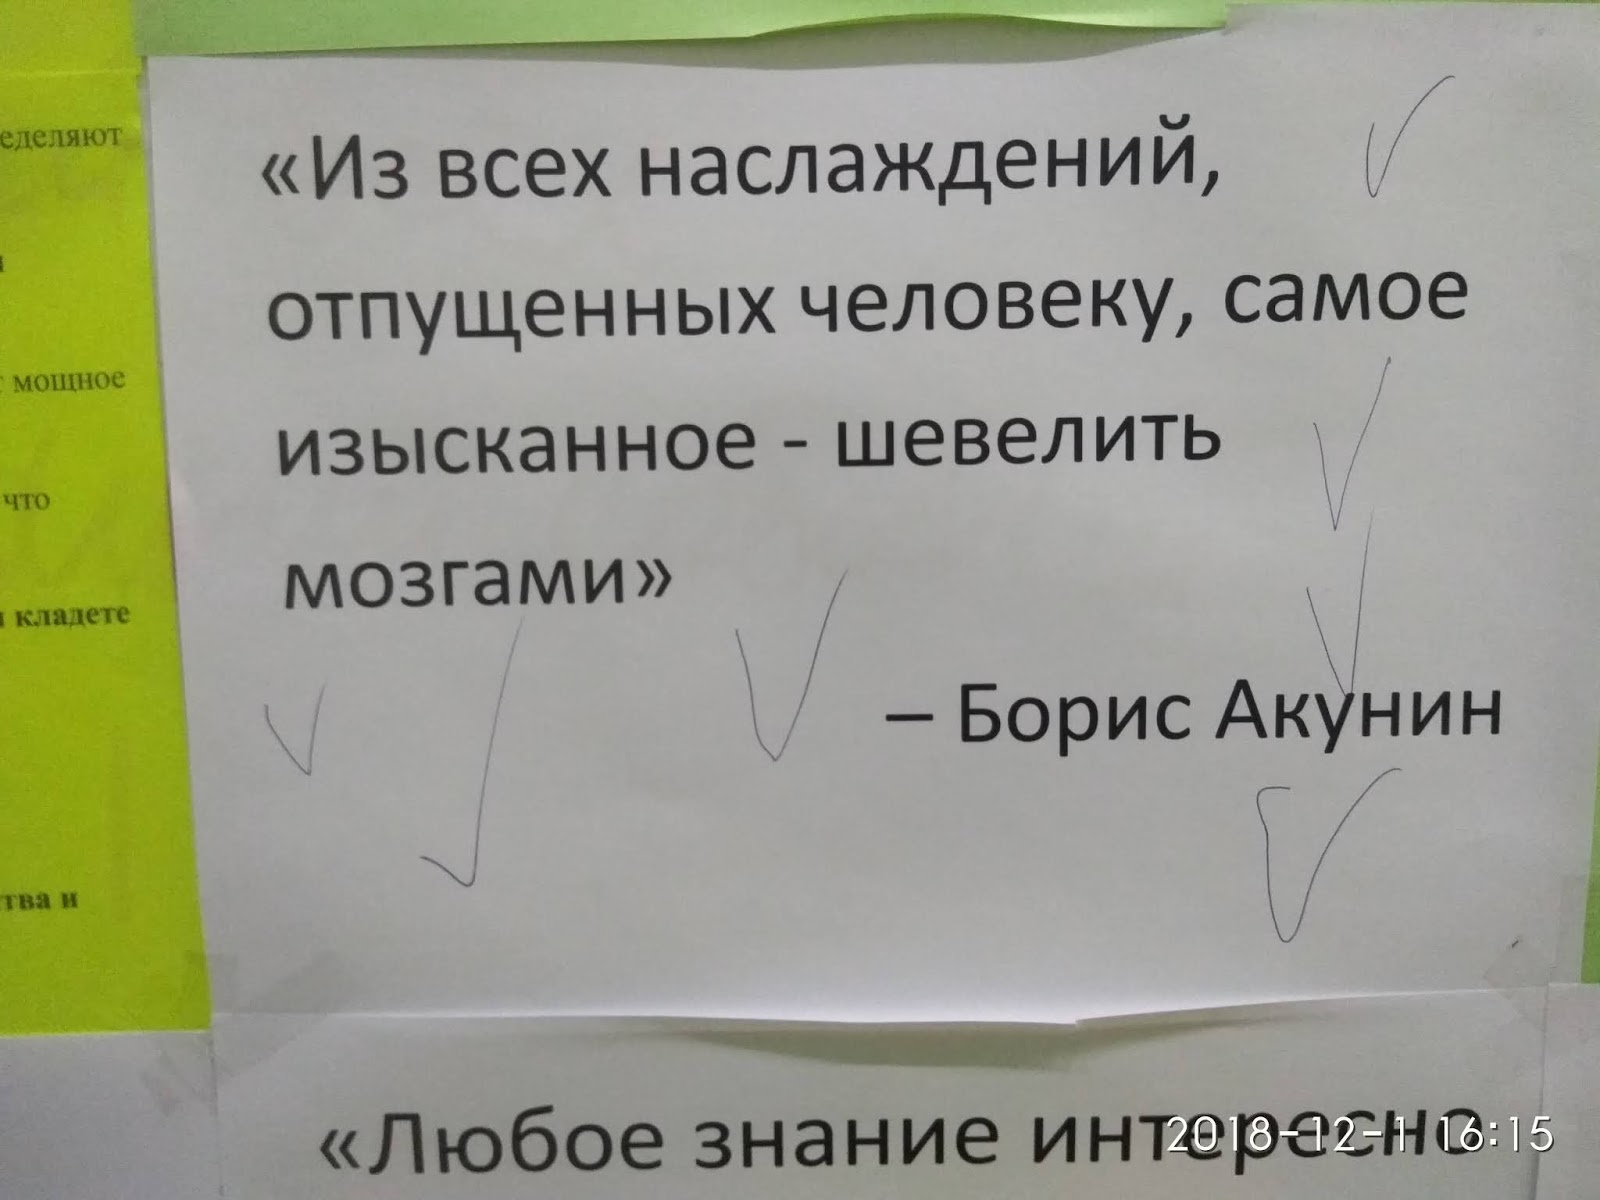 еделяют
мощное
что
кладете
тва и
«Из всех наслаждений,
отпущенных человеку, самое
изысканное - шевелить
мозгами»
– Борис Акунин
«Любое знание интересно
2018-12-1 16:15